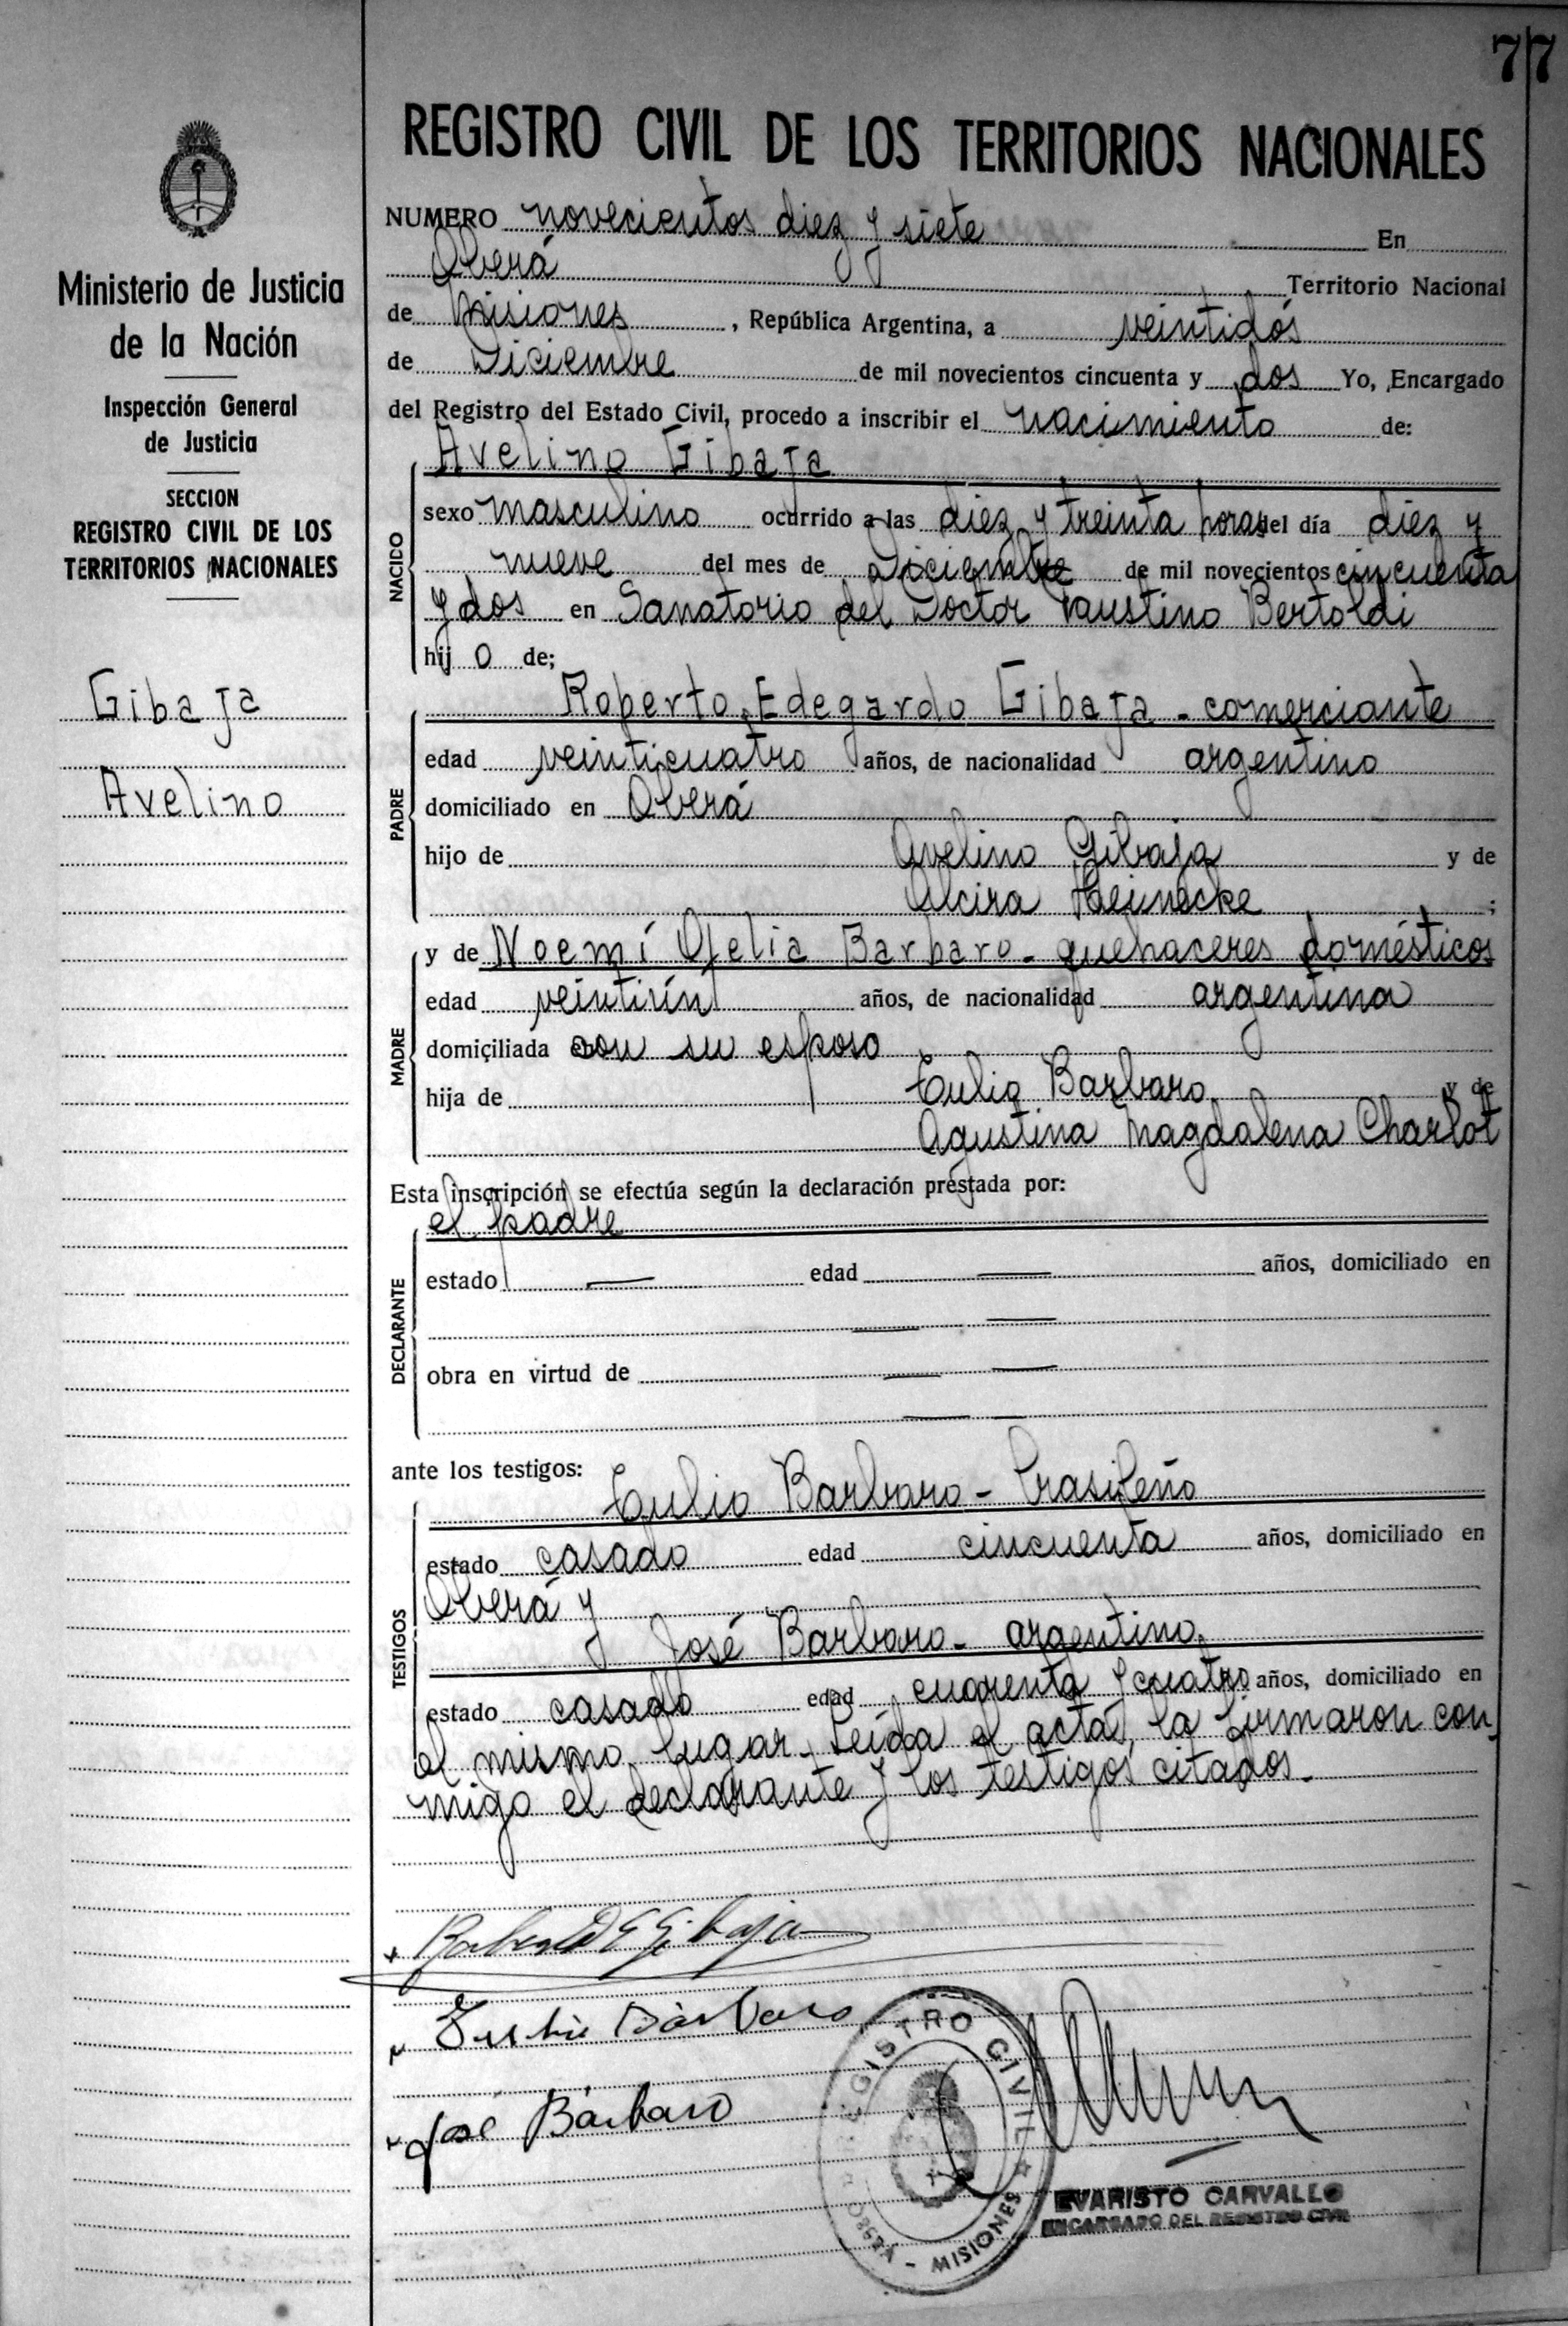 77
REGISTRO CIVIL DE LOS TERRITORIOS NACIONALES
Ministerio de Justicia
de la Nación
Inspección General
de Justicia
SECCION
REGISTRO CIVIL DE LOS
TERRITORIOS NACIONALES
Gibaja
Avelino
NUMERO novecientos diez y siete En
Oberá Territorio Nacional
de Misiones, República Argentina, a veintidós
de Diciembre de mil novecientos cincuenta y dos Yo, Encargado
del Registro del Estado Civil, procedo a inscribir el nacimiento de:
NACIDO
Avelino Gibaja
sexo masculino ocurrido a las diez y treinta horas del día diez y
nueve del mes de Diciembre de mil novecientos cincuenta
y dos en Sanatorio del Doctor Faustino Bertoldi
hijo de;
PADRE
Roberto Edegardo Gibaja - comerciante
edad veinticuatro años, de nacionalidad argentino
domiciliado en Oberá
hijo de Avelino Gibaja y de
Alcira Heinecke;
MADRE
y de Noemí Ofelia Barbaro - quehaceres domésticos
edad veintiún años, de nacionalidad argentina
domiciliada con su esposo
hija de Tulio Barbaro y de
Agustina Magdalena Charlot
Esta inscripción se efectúa según la declaración prestada por:
DECLARANTE
el padre
estado — edad — años, domiciliado en
— —
obra en virtud de — —
— —
ante los testigos:
TESTIGOS
Tulio Barbaro - brasileño
estado casado edad cincuenta años, domiciliado en
Oberá y
José Barbaro - argentino,
estado casado edad cuarenta y cuatro años, domiciliado en
el mismo lugar. Leída el acta, la firmaron con
migo el declarante y los testigos citados.
Roberto E Gibaja
Tulio Bárbaro
José Bárbaro
REGISTRO CIVIL
OBERA - MISIONES
EVARISTO CARVALLO
ENCARGADO DEL REGISTRO CIVIL